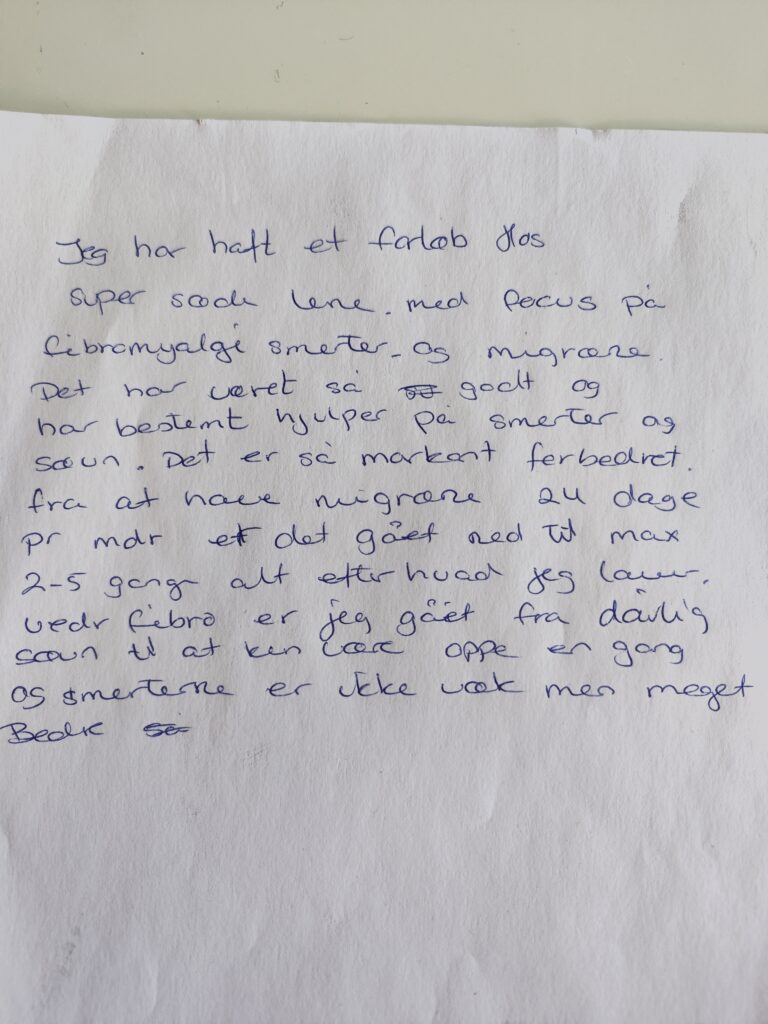 Jeg har haft et forløb Hos
super søde Lene. med focus på
fibromyalgi smerter - og migræne.
Det har været så godt og
har bestemt hjulper på smerter og
søvn. Det er så markant forbedret.
fra at have migræne 24 dage
pr mdr et det gået ned til max
2-5 gange alt efter hvad jeg laver.
vedr fibro er jeg gået fra dårlig
søvn til at kun være oppe en gang
og smerterne er ikke væk men meget
Bedre